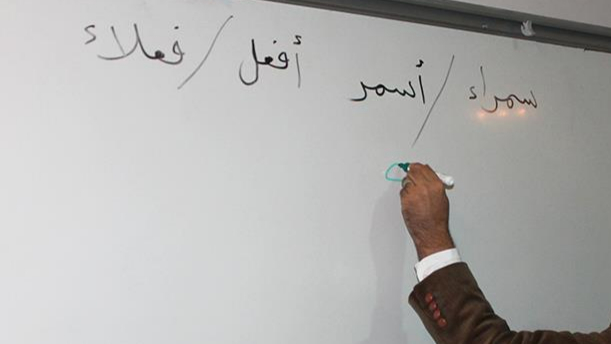 سمراء / أسمر أفعل / فعلاء